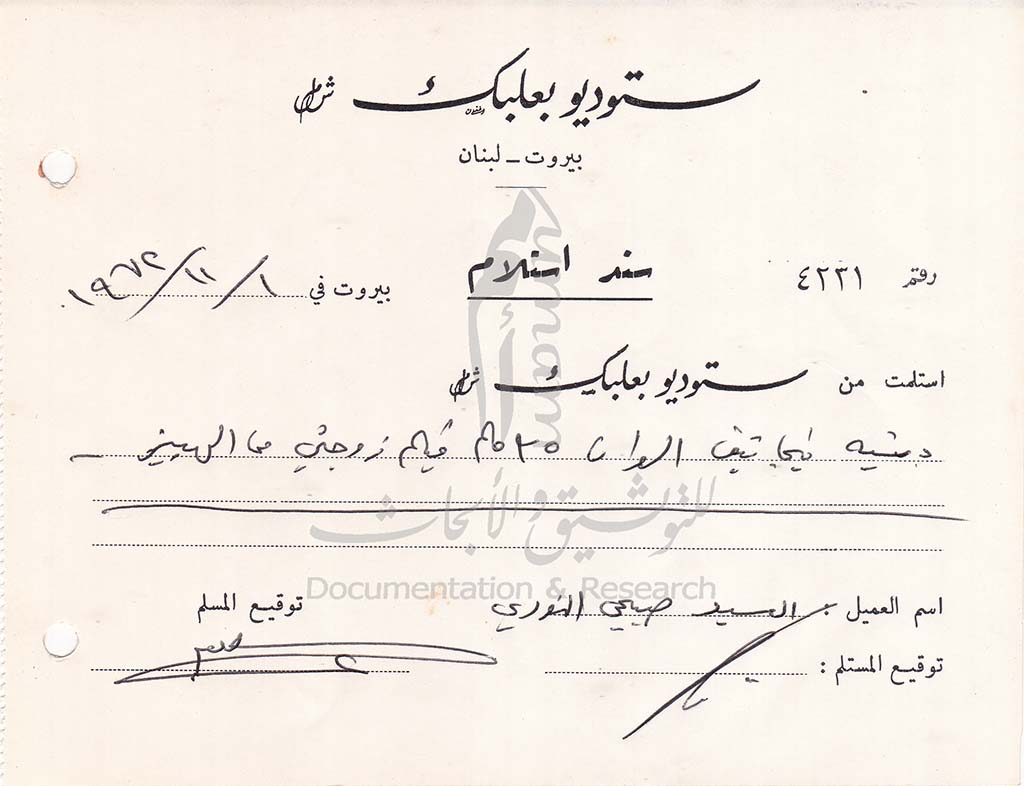 ستوديو بعلبك ش م ل
بيروت ـ لبنان
رقم ٤٢٣١
سند استلام
بيروت في ١ / ١١ / ١٩٧٢
استلمت من ستوديو بعلبك ش م ل
نيجاتيف الوان ٣٥ ملم فيلم زوجتي من الهيبيز
umam
للتوثيق و الأبحاث
Documentation & Research
اسم العميل : السيد صبحي النوري
توقيع المسلم
توقيع المستلم :